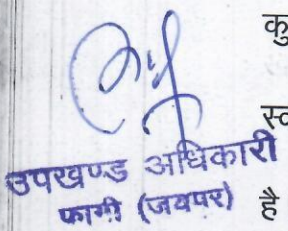 कु
स्
उपखण्ड अधिकारी
फागी (जयपुर)
है